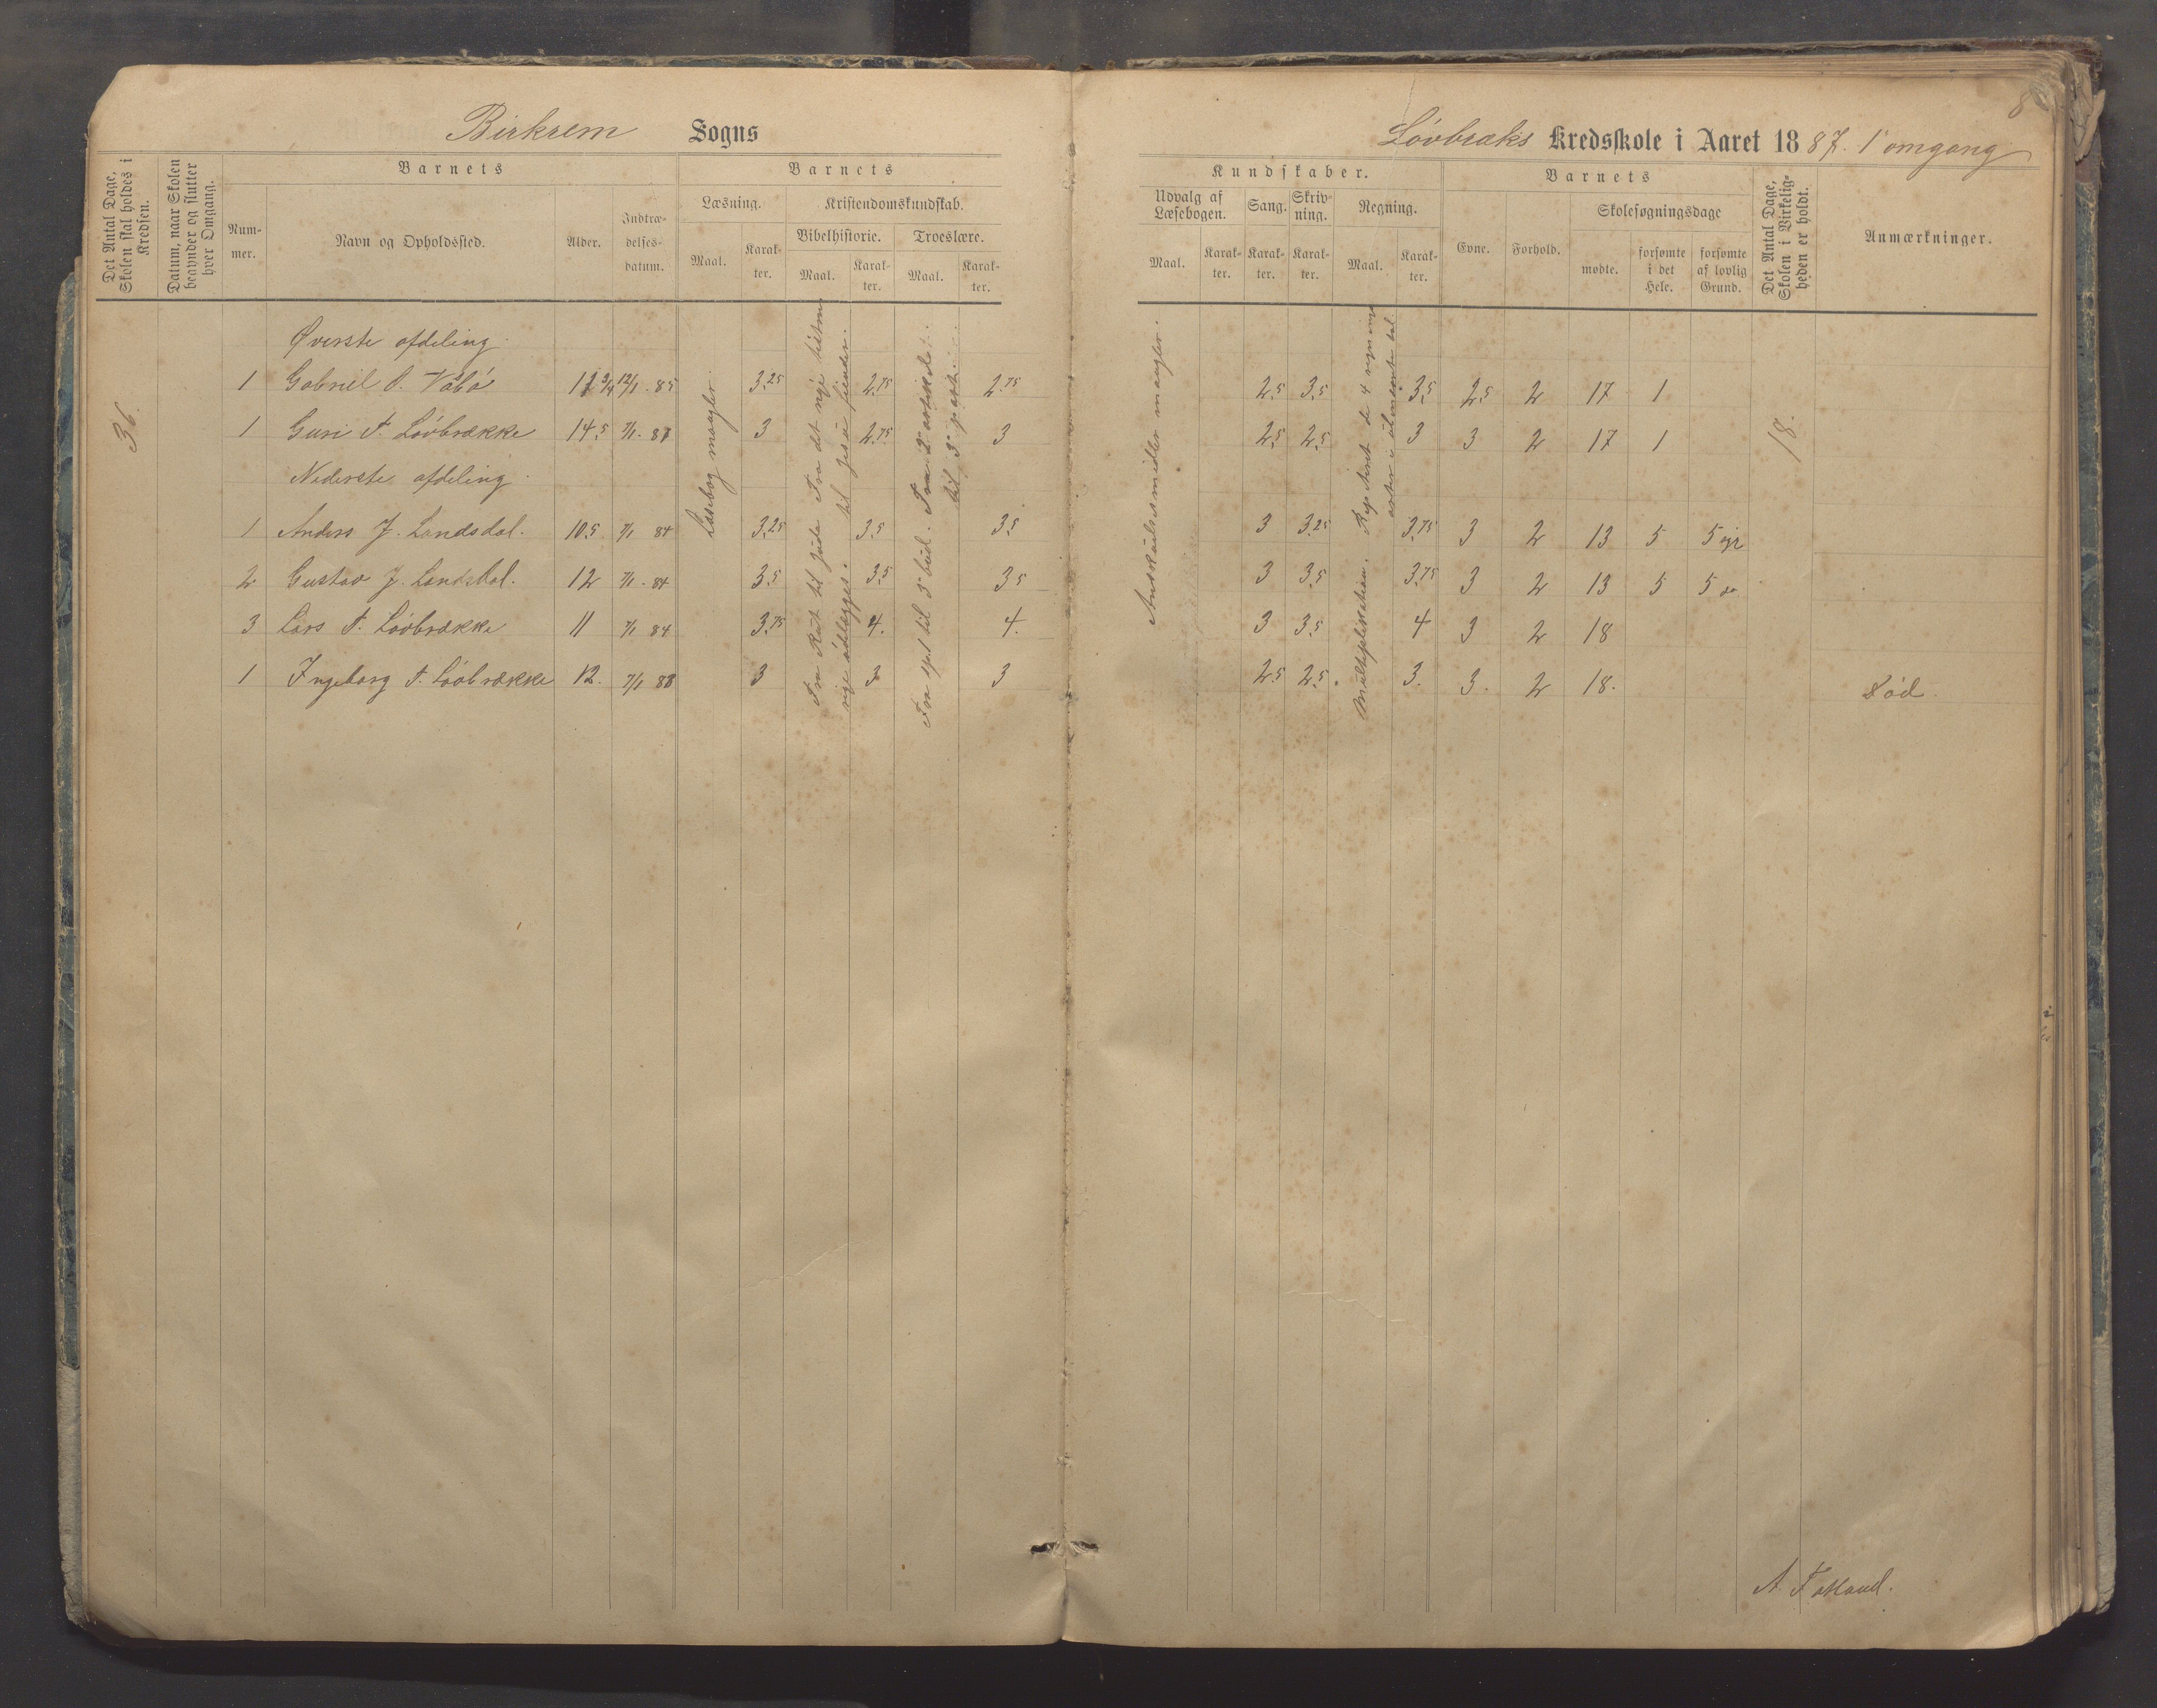 8
Birkrem Sogns
Løvbræks Kredsskole i Aaret 1887. 1 omgang
Det Antal Dage, Skolen skal holdes i Kredsen.
Datum, naar Skolen begynder og slutter hver Omgang.
Barnets
Nummer.
Navn og Opholdssted.
Alder.
Indtrædelsesdatum.
Barnets
Læsning.
Maal.
Karakter.
Kristendomskundskab.
Bibelhistorie.
Maal.
Karakter.
Troeslære.
Maal.
Karakter.
Kundskaber.
Udvalg af Læsebogen.
Maal.
Karakter.
Sang.
Karakter.
Skrivning.
Karakter.
Regning.
Maal.
Karakter.
Barnets
Evne.
Forhold.
Skolesøgningsdage
mødte.
forsømte i det Hele.
forsømte af lovlig Grund.
Det Antal Dage, Skolen i Virkeligheden er holdt.
Anmærkninger.
36.
Øverste afdeling.
1 Gabriel 12/1-85 3.25 2.75 2.75 2.5 3.5 3.5 2.5 2 17 1
1 Guri T. Løvbrække 14.5 7/1-81 3 2.75 3 2.5 2.5 3 3 2 17 1
Nederste afdeling.
1 Anders J. Landsdal. 10.5 7/1 84 3.25 3.5 3.5 3 3.25 3.75 3 2 13 5 5
2 Gustav J. Landsdal. 12 7/1-84 3.5 3.5 3.5 3 3.5 3.75 3 2 13 5 5
3 Lars T. Løvbrække 11 7/1 84 3.75 4. 4. 3 3.5 4 3 2 18
1 Ingeborg T. Løvbrække 12. 7/1 83 3 3 3 2.5 2.5. 3. 3. 2 18.
Læsebog mangler.
til Jesu fiender.
Fra 2 artikel til 3 part.
Anskuelsesmidler mangler.
Multiplikation. de 4 regnings
18.
Død.